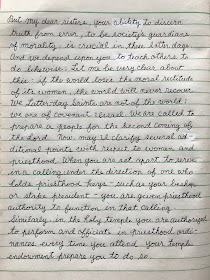 But my dear sisters, your ability to discern
truth from error, to be society's guardians
of morality, is crucial in these latter days.
And we depend upon you to teach others to
do likewise. Let me be very clear about
this: if the world loses the moral rectitude
of its women, the world will never recover.
We Latter-day Saints are not of the world;
we are of covenant Israel. We are called to
prepare a people for the second coming of
the Lord. Now, may I clarify several ad-
ditional points with respect to women and
priesthood. When you are set apart to serve
in a calling under the direction of one who
holds priesthood keys - such as your bishop
or stake president - you are given priesthood
authority to function in that calling.
Similarly, in the holy temple you are authorized
to perform and officiate in priesthood ordi-
nances every time you attend. Your temple
endowment prepares you to do so.